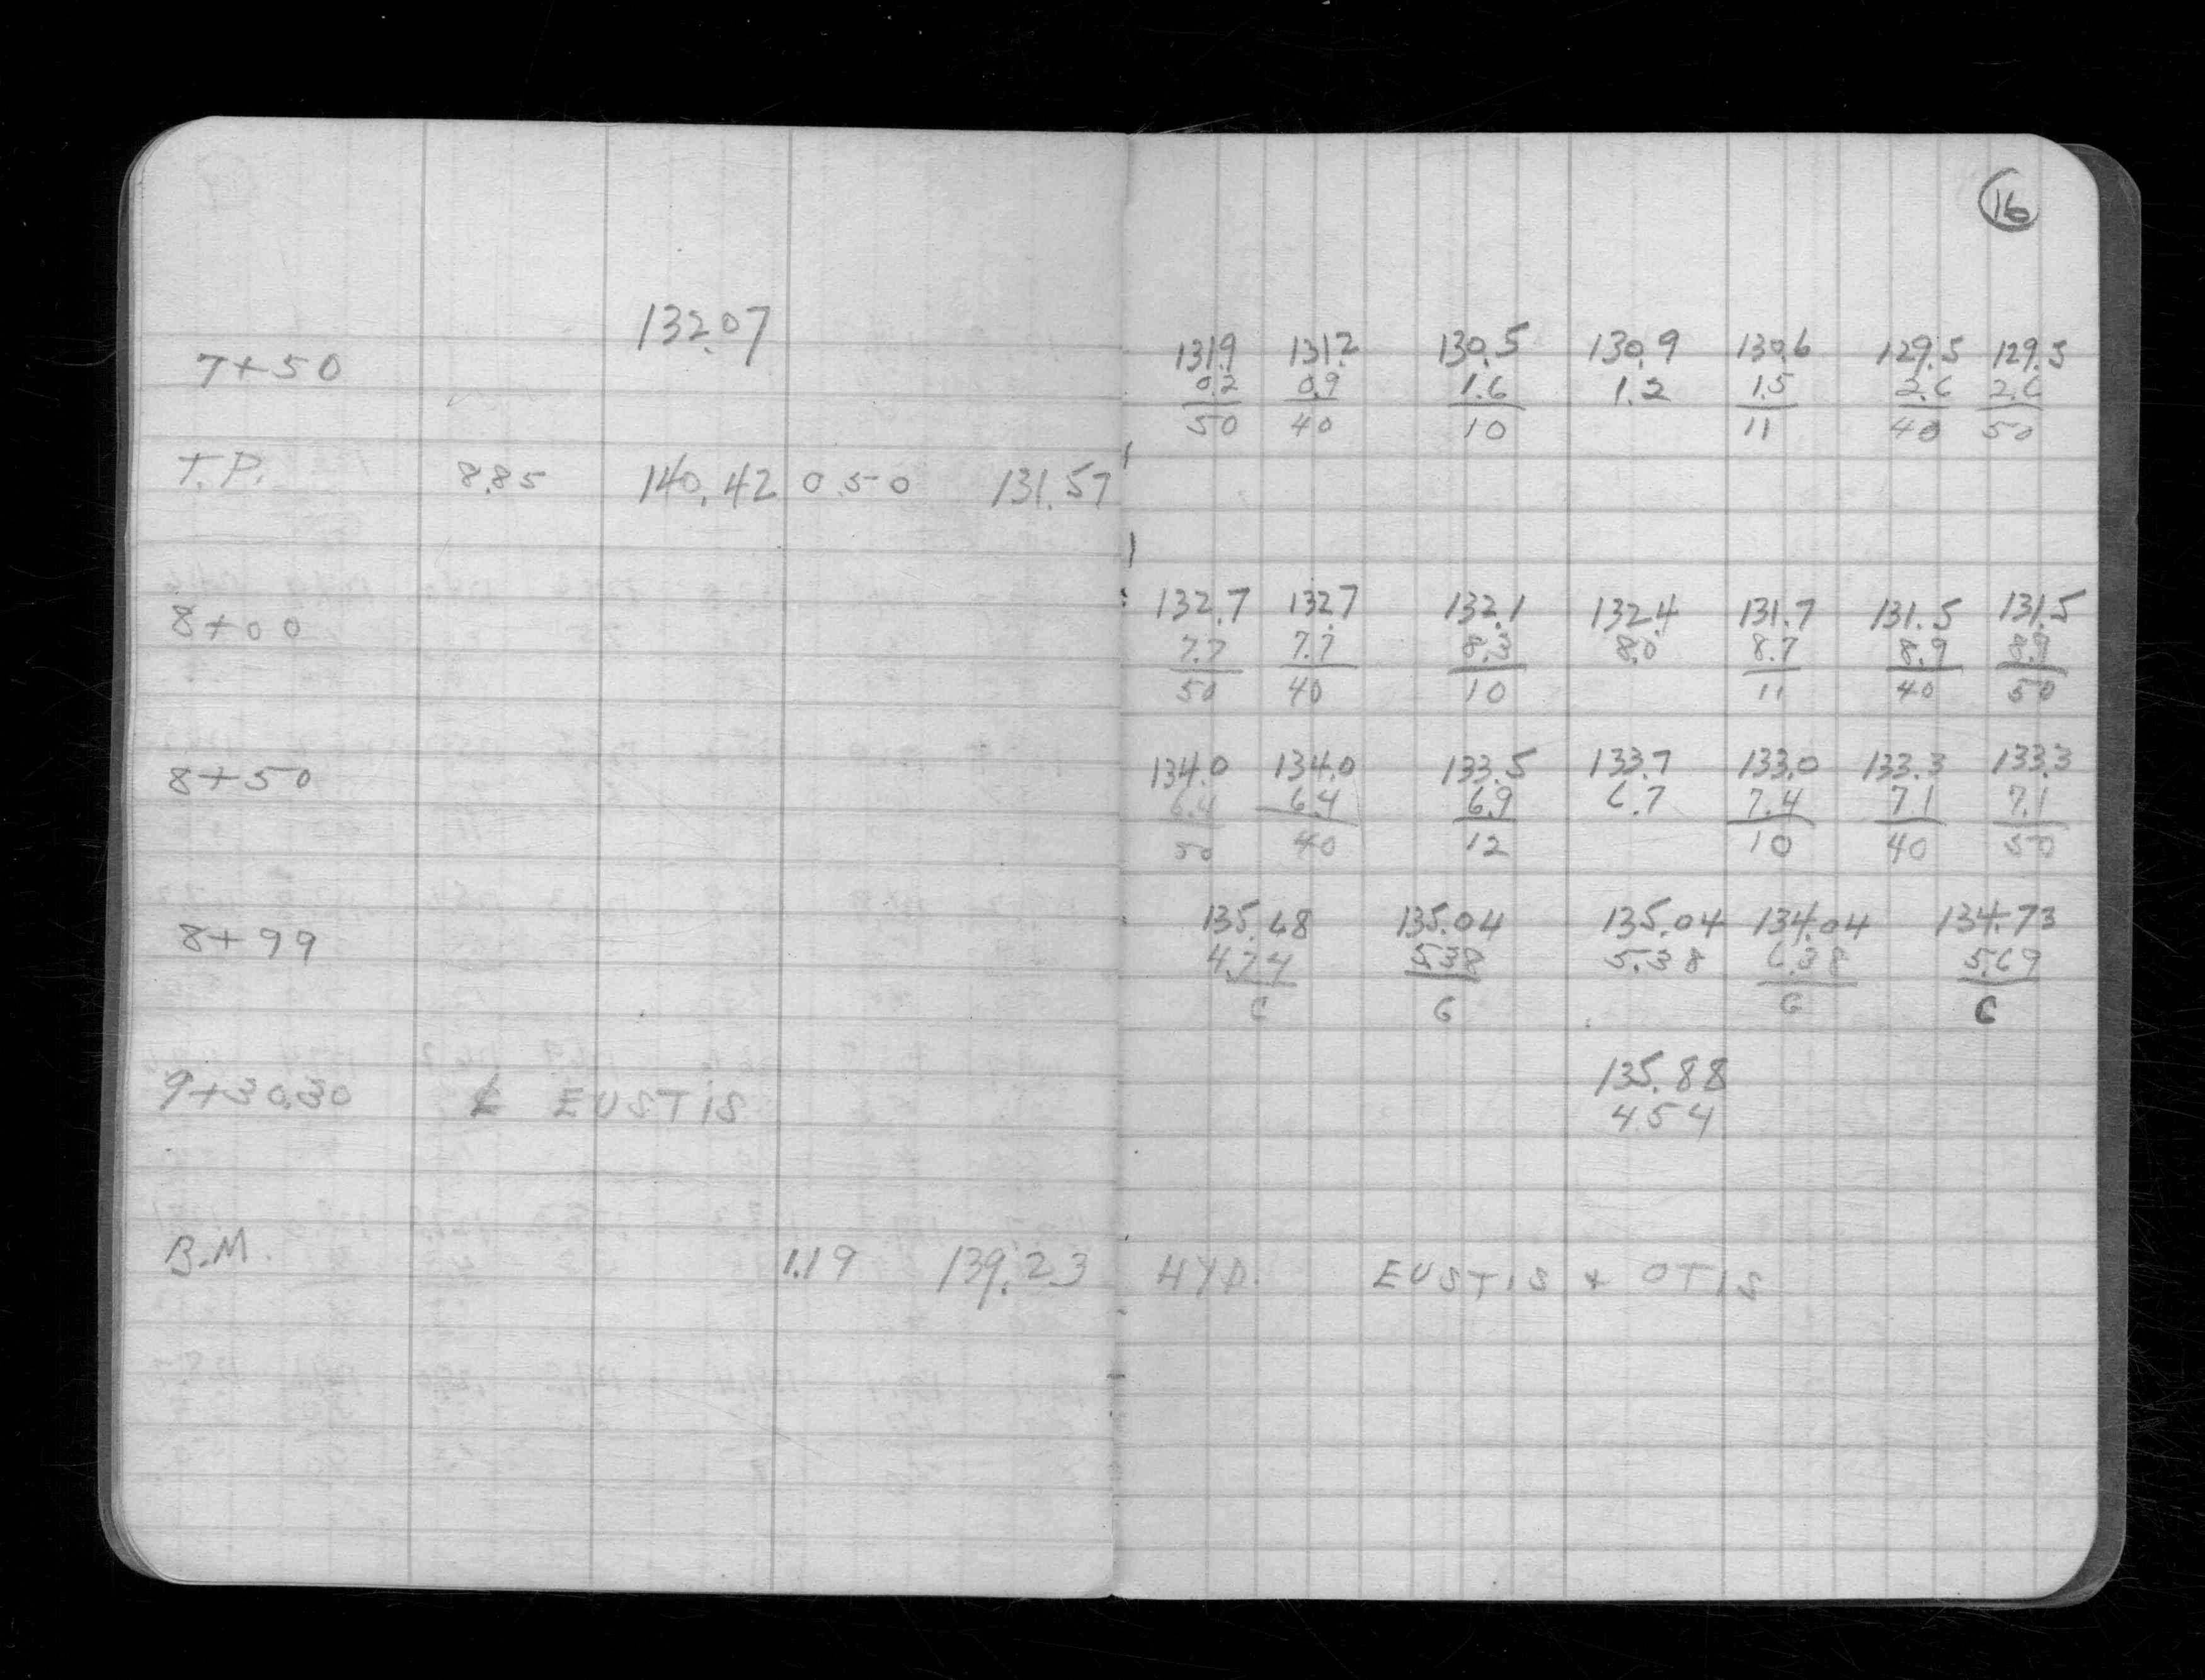 16
132.07
7+50 131.9 131.2 130.5 130.9 130.6 129.5 129.5
0.2 0.9 1.6 1.2 1.5 2.6 2.6
50 40 10 11 40 50
T.P. 8.85 140.42 0.50 131.57
8+00 132.7 132.7 132.1 132.4 131.7 131.5 131.5
7.7 7.7 8.3 8.0 8.7 8.9 8.9
50 40 10 11 40 50
8+50 134.0 134.0 133.5 133.7 133.0 133.3 133.3
6.4 6.4 6.9 6.7 7.4 7.1 7.1
50 40 12 10 40 50
8+99 135.68 135.04 135.04 134.04 134.73
4.74 5.38 5.38 6.38 5.69
G G G G
135.88
9+30.30 ℄ EUSTIS 4.54
B.M. 1.19 139.23 HYD. EUSTIS & OTIS